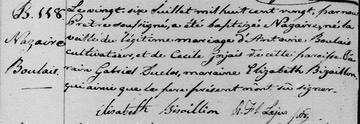 B. 118.
Nazaire
Boulais.
Le vingt six Juillet mil huit cent vingt, par nous
Prêtre soussigné, a été baptisé Nazaire, né la
veille du légitime mariage d'Antoine Boulais
cultivateur, et de Cecile Jojais de cette paroisse. Pa-
rain Gabriel Duclos, maraine Elizabeth Bizaillon,
qui ainsi que le pere présent n'ont su signer.
Elisabeth Bisaillon